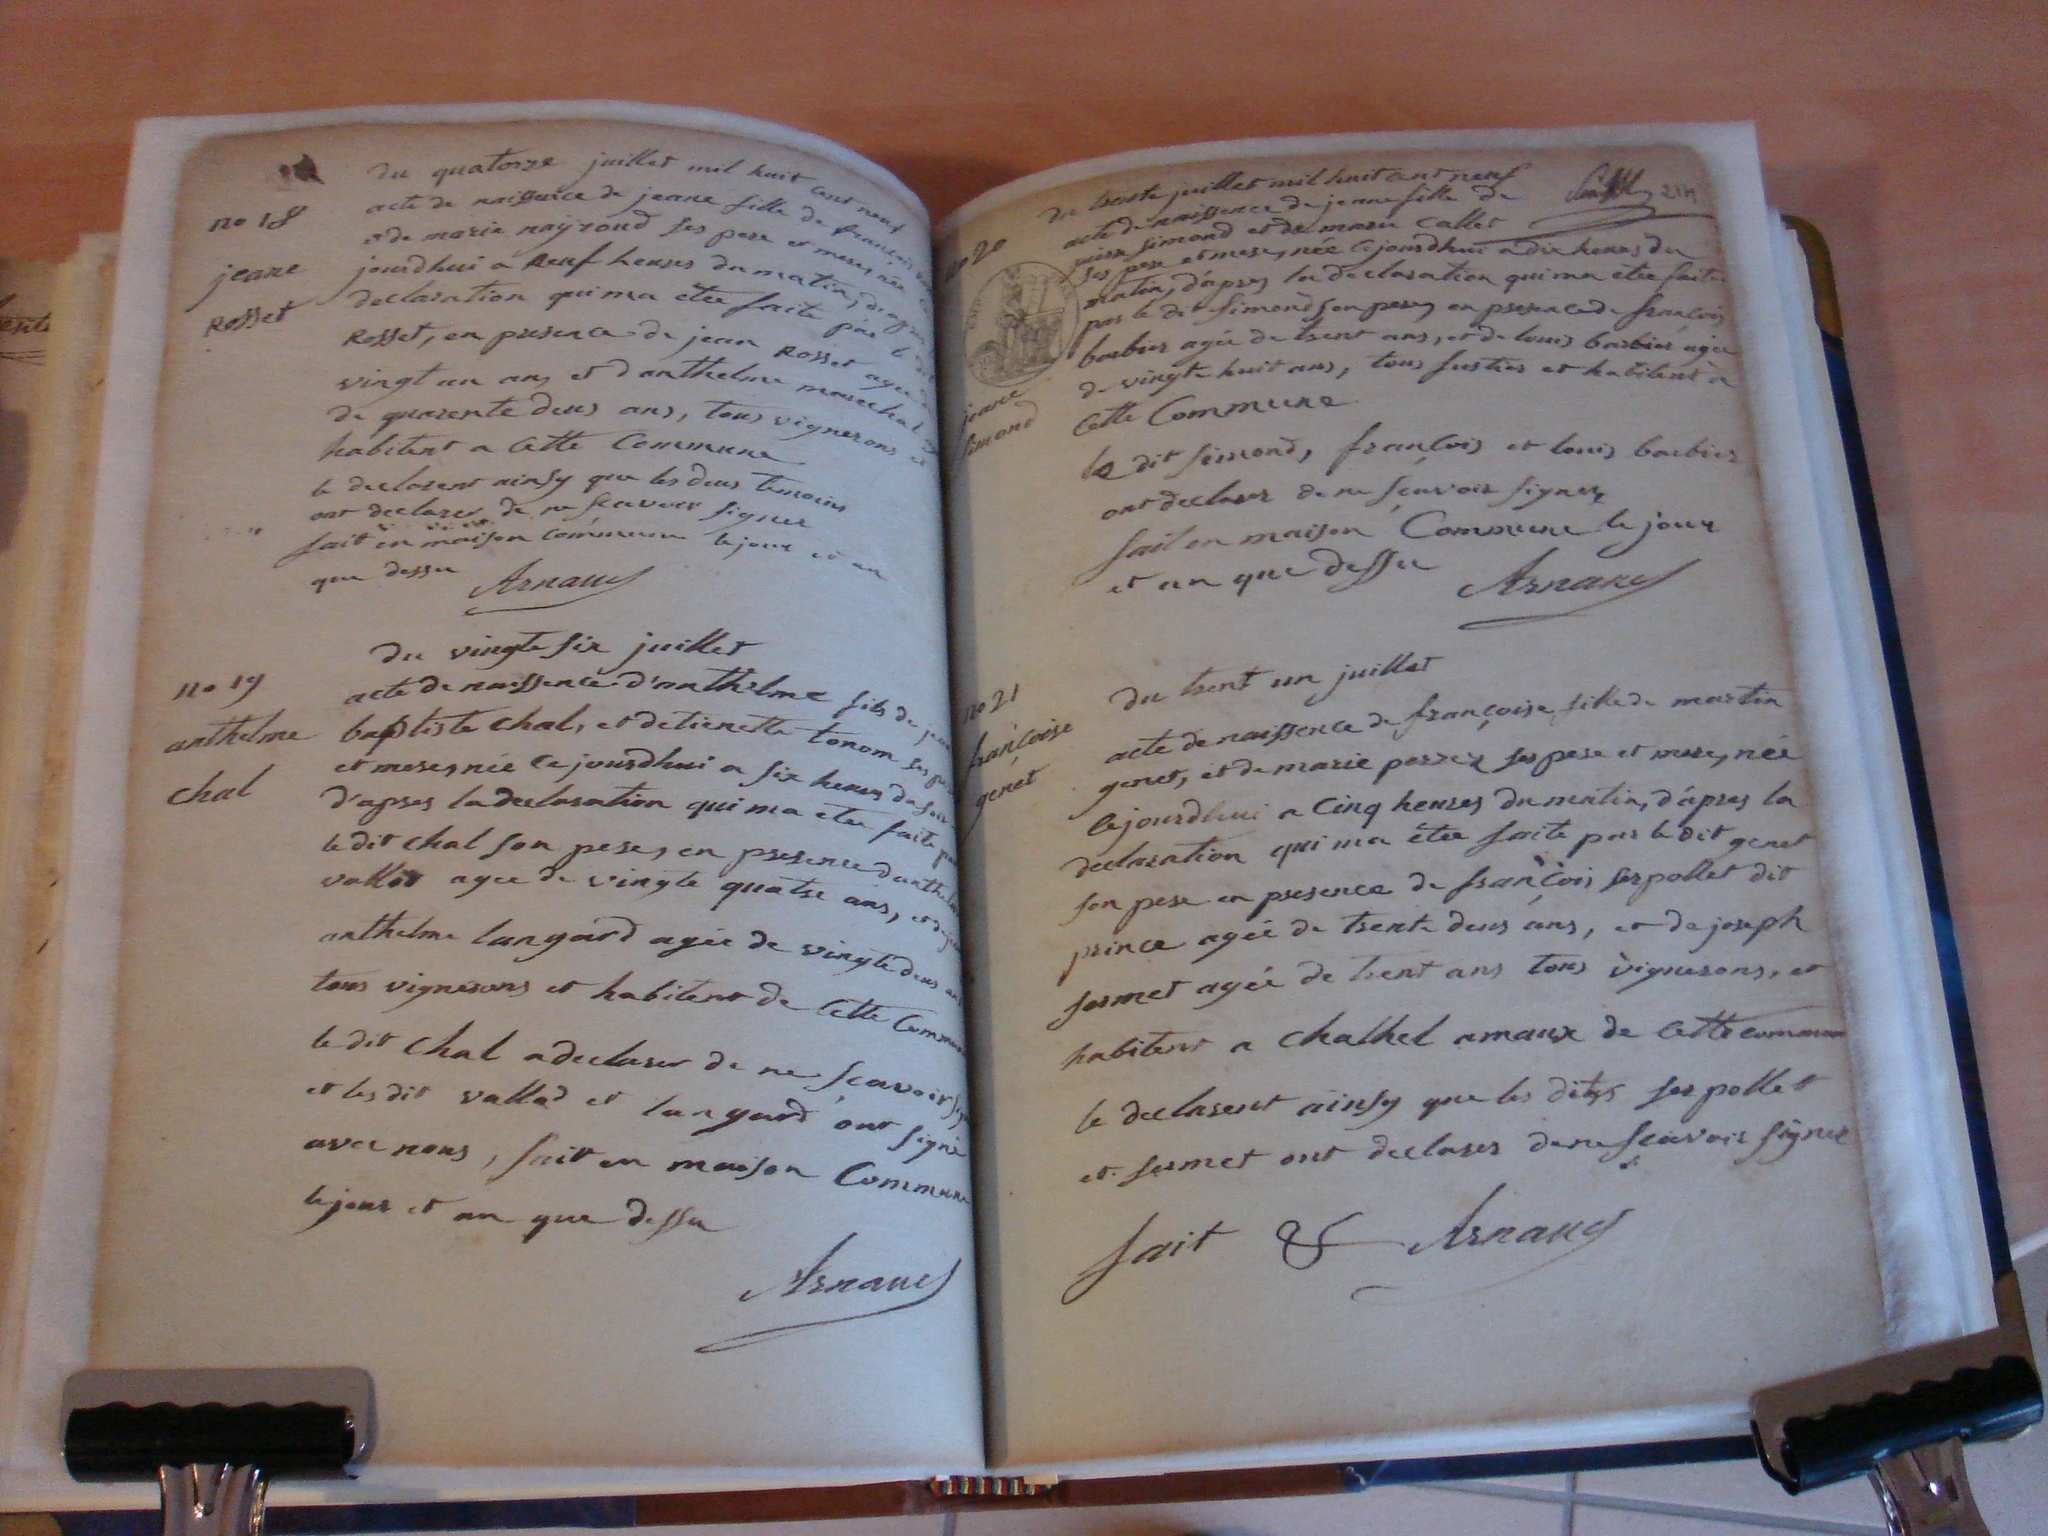 no 18
jeane
Rosset
du quatorze juillet mil huit cent neuf
acte de naissance de jeane fille de francois
et de marie nayroud ses pere et mere, née
jourdhui a neuf heures du matin, d'apres
declaration qui ma étée faite par le dit
Rosset, en presence de jean Rosset agee de
vingt un ans et d'anthelme marechal
de quarente deus ans, tous vignerons et
habitent a cette Commune
le declarent ainsy que les deus temoins
ont declarer de ne scavoir signer
fait en maison commune le jour et an
que dessu Arnaud
no 19
anthelme
chal
du vingte six juillet
acte de naissence d'anthelme fils de jean
baptiste chal, et detienette tonom ses pere
et mere, née ce jourdhui a six heures du soir
d'apres la declaration qui ma etee faite par
le dit chal son pere, en presence d'anthelme
vallod agee de vingte quatre ans, et de
anthelme langard agée de vingte deus ans
tous vignerons et habitent de cette Commune
le dit chal a declarer de ne scavoir
et les dit vallod et langard ont signé
avec nous, fait en maison Commune
le jour et an que dessu
Arnaud
214
no 20
jeane
simond
du trente juillet mil huit cent neuf
acte de naissence de jeane fille de
pierre simond et de marie Callet
ses pere et mere, née ce jourdhui a dix heures du
matin, d'apres la declaration qui ma étée faite
par le dit simond son pere, en presence de francois
barbier agée de trent ans, et de louis barbier agee
de vingte huit ans, tous et habitent a
cette Commune
le dit simond, françois et louis barbier
ont declarer de ne scavoir signer,
fait en maison Commune le jour
et an que dessu Arnaud
no 21
françoise
genet
du trent un juillet
acte de naissence de françoise fille de martin
genet, et de marie perrex ses pere et mere, née
cejourdhui a cinq heures du matin, d'apres la
declaration qui ma étée faite par le dit genet
son pere en presence de françois serpollet dit
prince agée de trente deus ans, et de joseph
sermet agée de trent ans tous vignerons, et
habitent a chalhel amaux de cette commune
le declarent ainsy que les dits serpollet
et sermet ont declarer de ne scavoir signer
fait & Arnaud